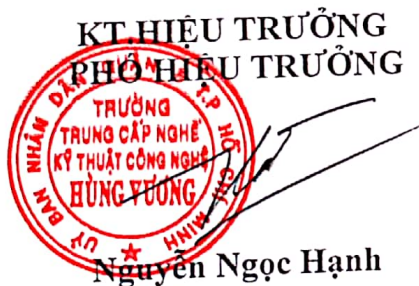 KT.HIỆU TRƯỞNG
PHÓ HIỆU TRƯỞNG
ỦY BAN NHÂN DÂN QUẬN T.P HỒ CHÍ MINH
TRƯỜNG
TRUNG CẤP NGHỀ
KỸ THUẬT CÔNG NGHỆ
HÙNG VƯƠNG
Nguyễn Ngọc Hạnh